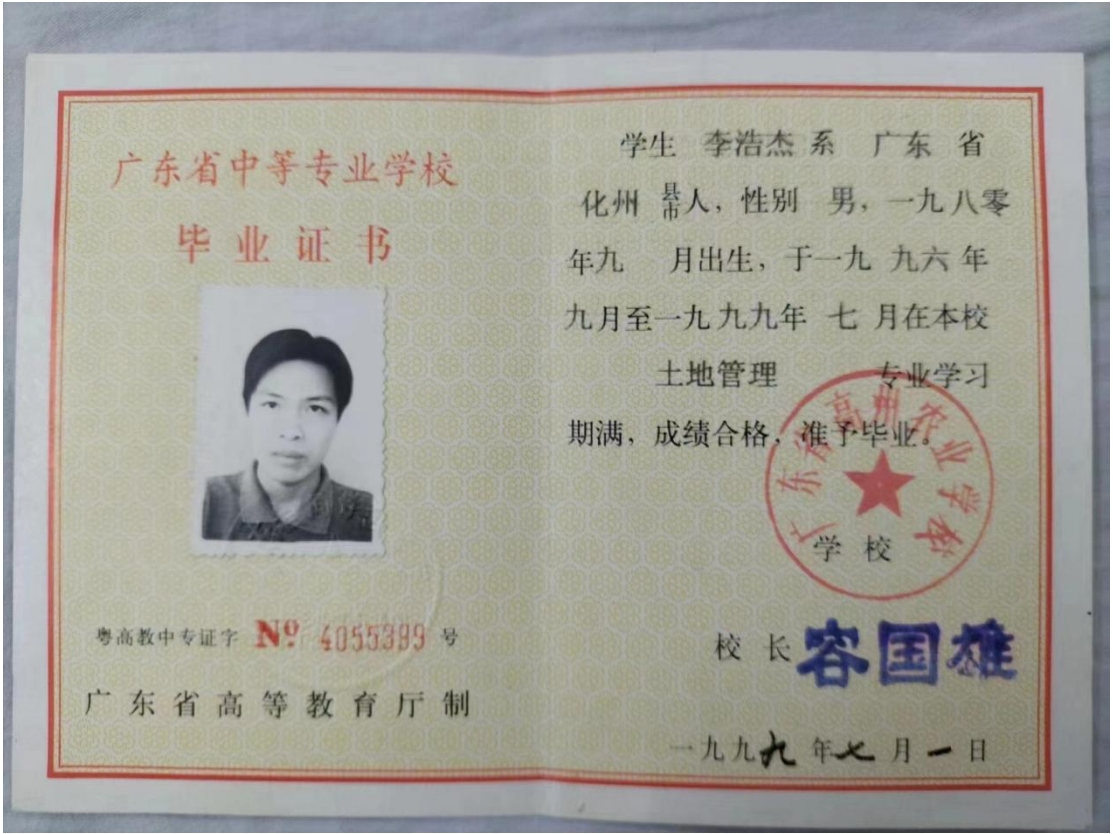 广东省中等专业学校
毕业证书
粤高教中专证字 № 4055399 号
广东省高等教育厅制
学生 李浩杰 系 广东 省
化州 县市人，性别 男，一九八零
年九 月出生，于一九 九六 年
九月至一九九九年 七 月在本校
土地管理 专业学习
期满，成绩合格，准予毕业。
广东省高州农业学校
学校
校长 容国雄
一九九九年七月一日